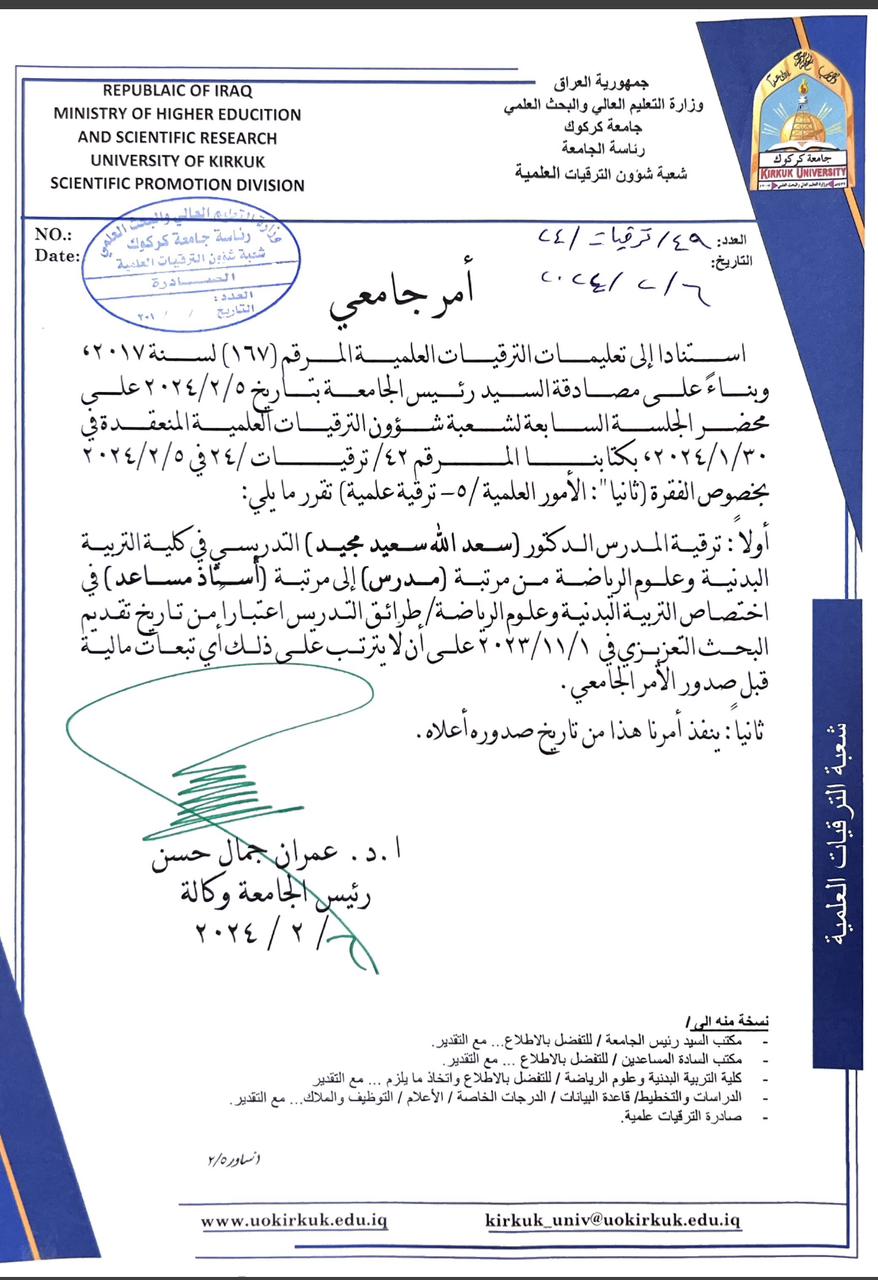 REPUBLAIC OF IRAQ
MINISTRY OF HIGHER EDUCITION
AND SCIENTIFIC RESEARCH
UNIVERSITY OF KIRKUK
SCIENTIFIC PROMOTION DIVISION
جمهورية العراق
وزارة التعليم العالي والبحث العلمي
جامعة كركوك
رئاسة الجامعة
شعبة شؤون الترقيات العلمية
جامعة كركوك
KIRKUK UNIVERSITY
NO.:
Date:
وزارة التعليم العالي والبحث العلمي
رئاسة جامعة كركوك
شعبة شؤون الترقيات العلمية
الصـــادرة
العدد:
التاريخ / / ٢٠١
العدد: ٤٩/ ترقيات /٢٤
التاريخ: ٦/ ٢ /٢٠٢٤
أمر جامعي
استنادا إلى تعليمات الترقيات العلمية المرقم (١٦٧) لسنة ٢٠١٧،
وبناءً على مصادقة السيد رئيس الجامعة بتاريخ ٢٠٢٤/٢/٥ على
محضر الجلسة السابعة لشعبة شؤون الترقيات العلمية المنعقدة في
٢٠٢٤/١/٣٠، بكتابنا المرقم ٤٢/ ترقيات /٢٤ في ٢٠٢٤/٢/٥
بخصوص الفقرة (ثانيا": الأمور العلمية /٥- ترقية علمية) تقرر ما يلي:
أولاً: ترقية المدرس الدكتور (سعد الله سعيد مجيد) التدريسي في كلية التربية
البدنية وعلوم الرياضة من مرتبة (مدرس) إلى مرتبة (أستاذ مساعد) في
اختصاص التربية البدنية وعلوم الرياضة/ طرائق التدريس اعتبارا من تاريخ تقديم
البحث التعزيزي في ٢٠٢٣/١١/١ على أن لا يترتب على ذلك أي تبعات مالية
قبل صدور الأمر الجامعي.
ثانياً: ينفذ أمرنا هذا من تاريخ صدوره أعلاه.
ا.د. عمران جمال حسن
رئيس الجامعة وكالة
٦/ ٢ / ٢٠٢٤
شعبة الترقيات العلمية
نسخة منه الى/
- مكتب السيد رئيس الجامعة / للتفضل بالاطلاع... مع التقدير.
- مكتب السادة المساعدين / للتفضل بالاطلاع ... مع التقدير.
- كلية التربية البدنية وعلوم الرياضة / للتفضل بالاطلاع واتخاذ ما يلزم ... مع التقدير
- الدراسات والتخطيط/ قاعدة البيانات / الدرجات الخاصة / الأعلام / التوظيف والملاك... مع التقدير.
- صادرة الترقيات علمية.
٢/٥
www.uokirkuk.edu.iq
kirkuk_univ@uokirkuk.edu.iq